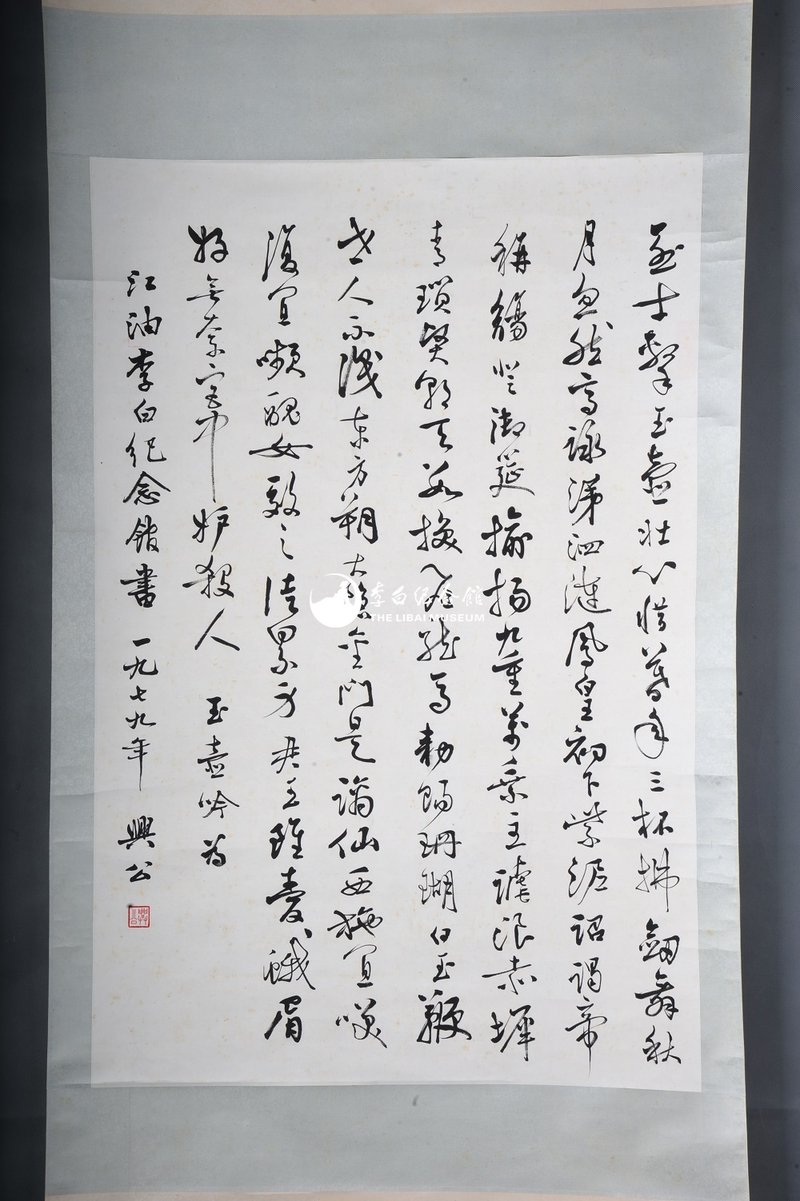 烈士擊玉壺壯心惜暮年三杯拂劔舞秋
月忽然高詠涕泗漣鳳皇初下紫泥詔謁帝
稱觴登御筵揄揚九重萬乘主謔浪赤墀
青瑣賢朝天數換飛龍馬勅賜珊瑚白玉鞭
世人不識東方朔大隱金門是謫仙西施宜笑
復宜嚬醜女效之徒累身君王雖愛蛾眉
好無奈宮中妒殺人 玉壺吟為
江油李白纪念館書 一九七九年 興公
李白纪念館
THE LIBAI MUSEUM